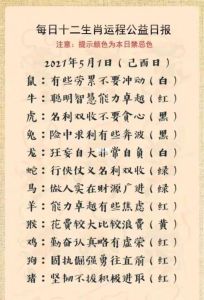 每日十二生肖运程公益日报
注意：提示颜色为本日禁忌色
2021年5月1日（己酉日）
鼠：有些劳累不要冲动（白）
牛：聪明智慧能力卓越（红）
虎：险中求利有些奔波（黑）
兔：名利双收不要贪心（黑）
龙：狂妄自大非常自负（白）
蛇：行侠仗义名利双收（绿）
马：做人实在财源广进（绿）
羊：能力卓越有些虚荣（红）
猴：花费较大比较浪费（黄）
鸡：勤奋认真略有虚荣（红）
狗：狗热倔强勇往直前（红）
猪：坚韧不拔积极进取（红）